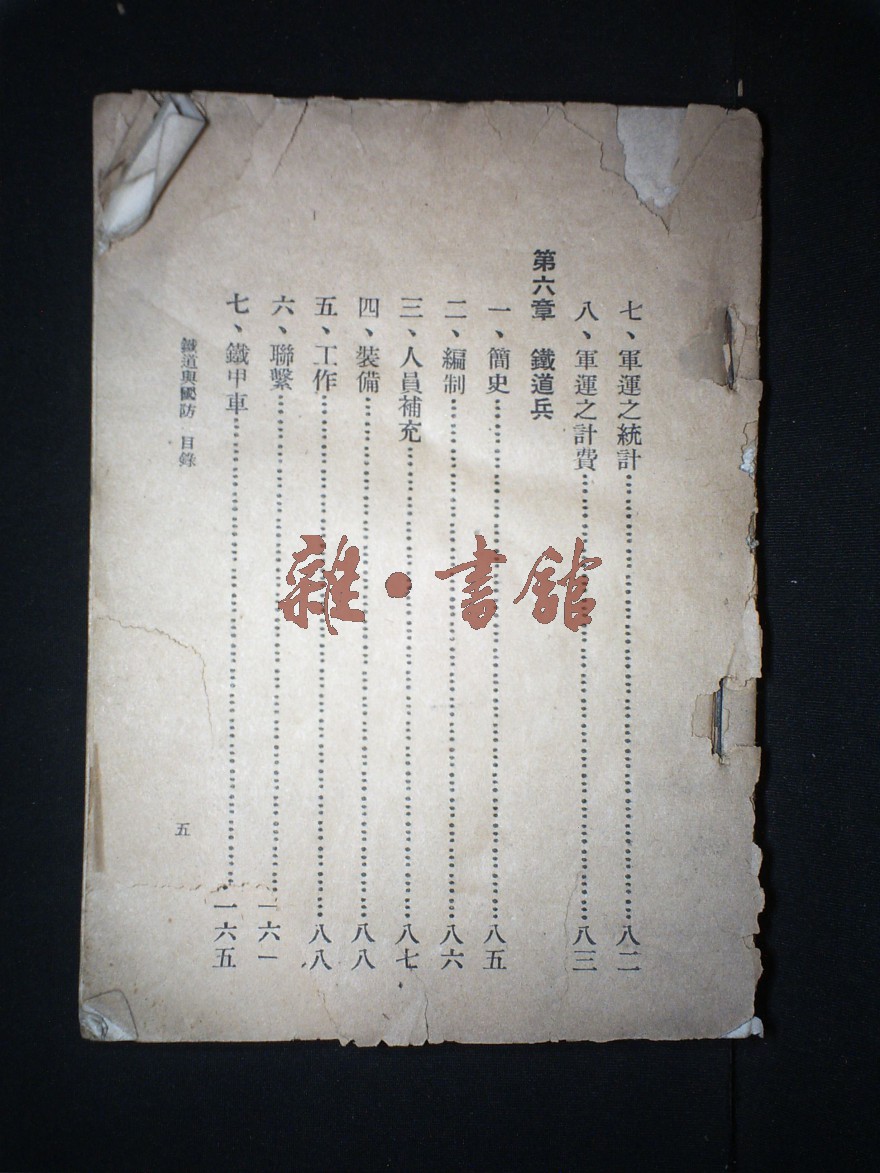 七、軍運之統計……八二
八、軍運之計費……八三
第六章 鐵道兵
一、簡史……八五
二、編制……八六
三、人員補充……八七
四、裝備……八八
五、工作……八八
六、聯繫……一六一
七、鐵甲車……一六五
鐵道與國防 目錄
五
雜·書館